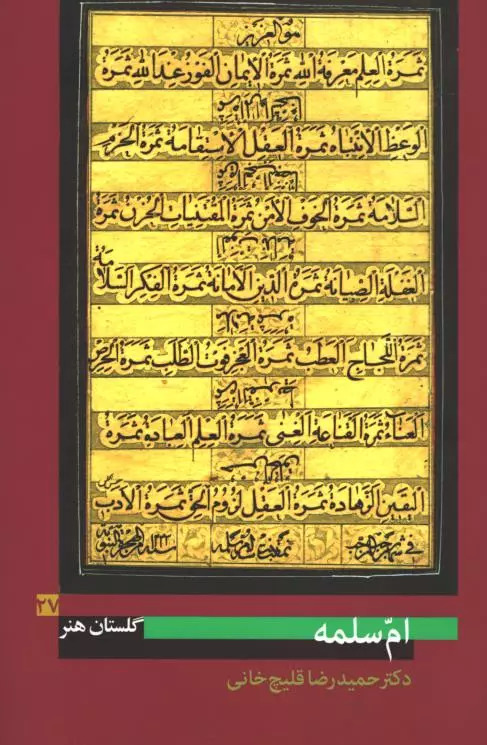 هو العزیز
ثمرة العلم معرفة الله ثمرة الایمان الفوز عند الله ثمرة
الوعظ الانتباه ثمرة العقل الاستقامة ثمرة الحزم
السلامة ثمرة الخوف الامن ثمرة المقتنیات الحزن ثمرة
العفة الصیانة ثمرة الدین الامانة ثمرة الفکر السلامة
ثمرة اللجاج العطب ثمرة العجز فوت الطلب ثمرة الحرص
العناء ثمرة القناعة الغنی ثمرة العلم العبادة ثمرة
الیقین الزهادة ثمرة العقل لزوم الحق ثمرة الادب
فی شهر
سنه الهجرة النبویة
۲۷
گلستان هنر
امّ سلمه
دکتر حمیدرضا قلیچ‌خانی